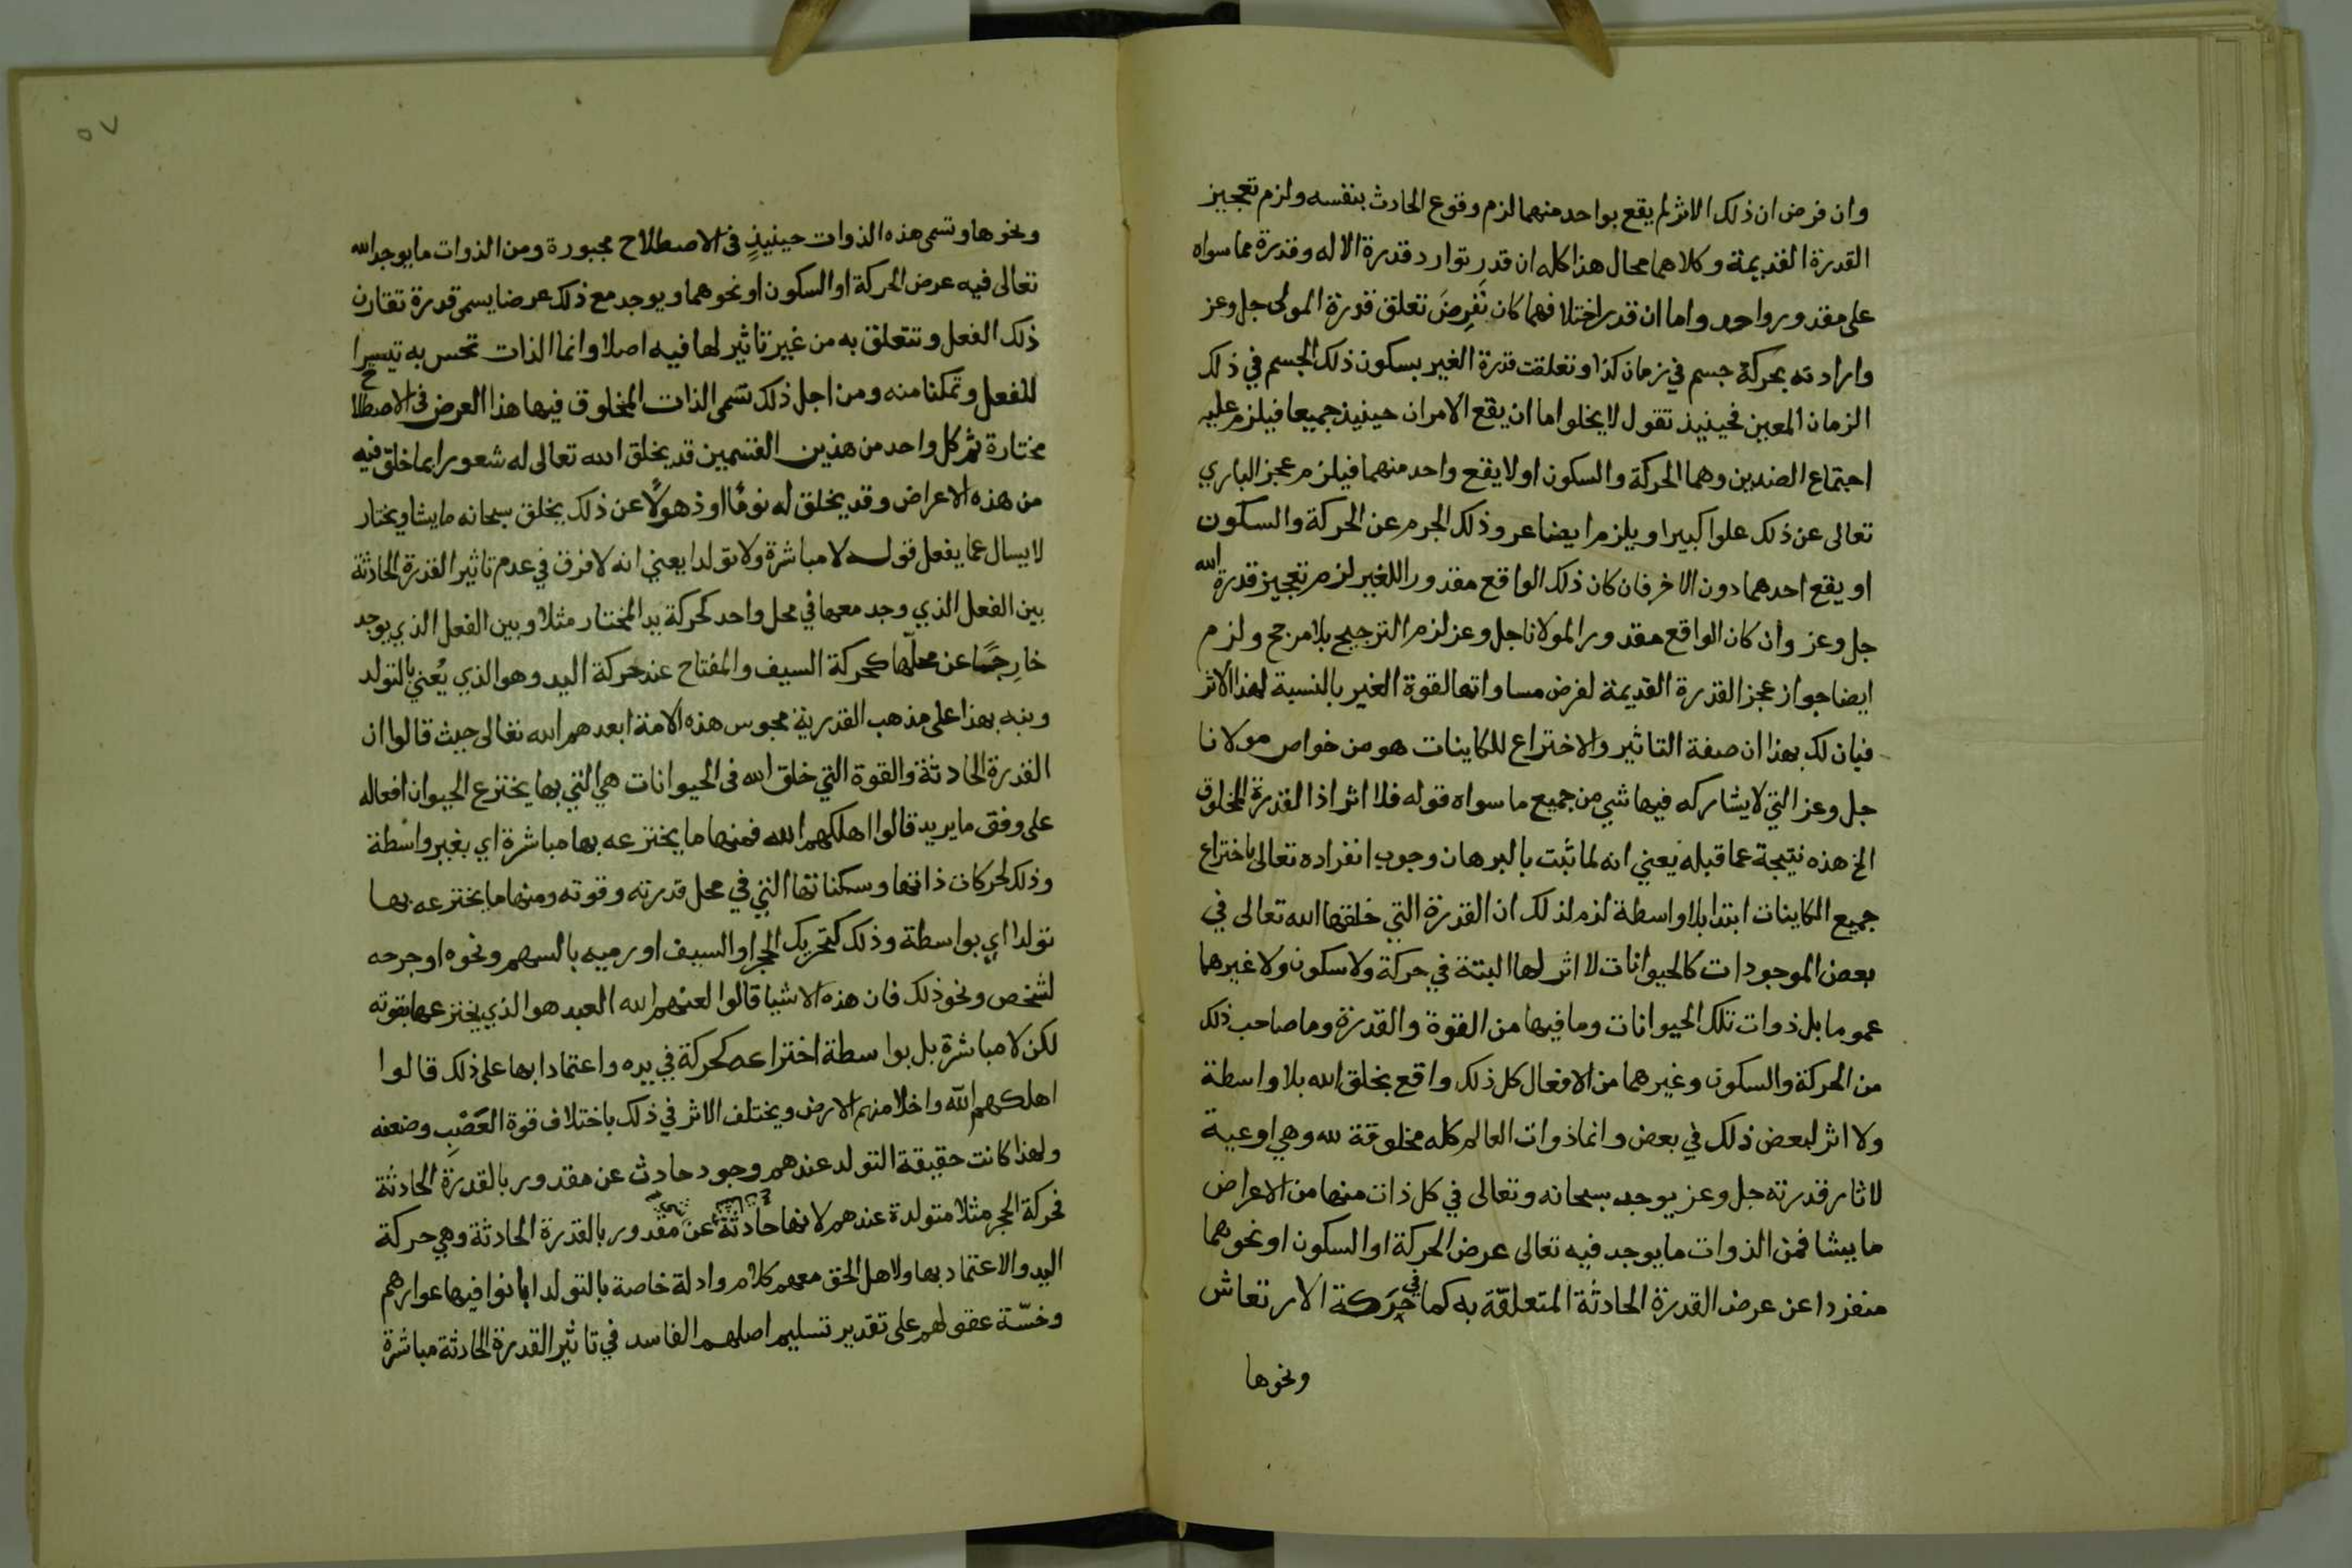 وان فرض ان ذلك الاثر لم يقع بواحد منهما لزم وقوع الحادث بنفسه ولزم تعجيز
القدرة القديمة وكلاهما محال هذا كله ان قدر توارد قدرة الاله وقدرة مما سواه
على مقدور واحد واما ان قدر اختلافهما كان نَفرِضَ تعلق قدرة المولى جل وعز
وارادته بحركة جسم في زمان كذا وتعلقت قدرة الغير بسكون ذلك الجسم في ذلك
الزمان المعين فحينيذ تقول لا يخلوا اما ان يقع الامران حينيذ جميعا فيلزم عليه
اجتماع الضدين وهما الحركة والسكون او لا يقع واحد منهما فيلزم عجز الباري
تعالى عن ذلك علوا كبيرا ويلزم ايضا عرو ذلك الجرم عن الحركة والسكون
او يقع احدهما دون الاخر فان كان ذلك الواقع مقدورا للغير لزم تعجيز قدرة الله
جل وعز وان كان الواقع مقدورا لمولانا جل وعز لزم الترجيح بلا مرجح ولزم
ايضا جواز عجز القدرة القديمة لفرض مساواتها لقوة الغير بالنسبة لهذا الاثر
فبان لك بهذا ان صفة التاثير والاختراع للكاينات هو من خواص مولانا
جل وعز التي لا يشاركه فيها شي من جميع ما سواه قوله فلا اثر اذا لقدرة المخلوق
الخ هذه نتيجة عما قبله يعني انه لما ثبت بالبرهان وجوب انفراده تعالى باختراع
جميع الكاينات ابتدا بلا واسطة لزم لذلك ان القدرة التي خلقها الله تعالى في
بعض الموجودات كالحيوانات لا اثر لها البتة في حركة ولا سكون ولا غيرهما
عموما بل ذوات تلك الحيوانات وما فيها من القوة والقدرة وما صاحب ذلك
من الحركة والسكون وغيرهما من الافعال كل ذلك واقع بخلق الله بلا واسطة
ولا اثر لبعض ذلك في بعض وانما ذوات العالم كله مخلوقة لله وهي اوعية
لاثار قدرته جل وعز يوجد سبحانه وتعالى في كل ذات منها من الاعراض
ما يشا فمن الذوات ما يوجد فيه تعالى عرض الحركة او السكون او نحوهما
منفردا عن عرض القدرة الحادثة المتعلقة به كما في حركة الارتعاش
ونحوها
٥٧
ونحوها وتسمى هذه الذوات حينيذٍ في الاصطلاح مجبورة ومن الذوات ما يوجد الله
تعالى فيه عرض الحركة او السكون او نحوهما ويوجد مع ذلك عرضا يسمى قدرة تقارن
ذلك الفعل وتتعلق به من غير تاثير لها فيه اصلا وانما الذات تحس به تيسرا
للفعل وتمكنا منه ومن اجل ذلك تسمى الذات المخلوق فيها هذا العرض في الاصطلاح
مختارة ثم كل واحد من هذين القسمين قد يخلق الله تعالى له شعورا بما خلق فيه
من هذه الاعراض وقد يخلق له نومًا او ذهولًا عن ذلك يخلق سبحانه ما يشا ويختار
لا يسال عما يفعل قوله لا مباشرة ولا تولدا يعني انه لا فرق في عدم تاثير القدرة الحادثة
بين الفعل الذي وجد معها في محل واحد كحركة يد المختار مثلا وبين الفعل الذي يوجد
خارِجًا عن محلها كحركة السيف والمفتاح عند حركة اليد وهو الذي يُعني بالتولد
ونبه بهذا على مذهب القدرية مجوس هذه الامة ابعدهم الله تعالى حيث قالوا ان
القدرة الحادثة والقوة التي خلق الله في الحيوانات هي التي بها يخترع الحيوان افعاله
على وفق ما يريد قالوا اهلكهم الله فمنها ما يخترعه بها مباشرة اي بغير واسطة
وذلك لحركات ذاتها وسكناتها التي في محل قدرته وقوته ومنها ما يخترعه بها
تولدا اي بواسطة وذلك كتحريك الحجر او السيف او رميه بالسهم ونحوه او جرحه
لشخص ونحو ذلك فان هذه الاشيا قالوا لعنهم الله العبد هو الذي يخترعها بقوته
لكن لا مباشرة بل بواسطة اختراعه كحركة في يده واعتمادا بها على ذلك قالوا
اهلكهم الله واخلا منهم الارض ويختلف الاثر في ذلك باختلاف قوة العَصَبِ وضعفه
ولهذا كانت حقيقة التولد عندهم وجود حادث عن مقدور بالقدرة الحادثة
فحركة الحجر مثلا متولدة عندهم لانها حادثة عن مقدور بالقدرة الحادثة وهي حركة
اليد والاعتماد بها ولاهل الحق معهم كلام وادلة خاصة بالتولد ابانوا فيها عوارهم
وخسّة عقولهم على تقدير تسليم اصلهم الفاسد في تاثير القدرة الحادثة مباشرة